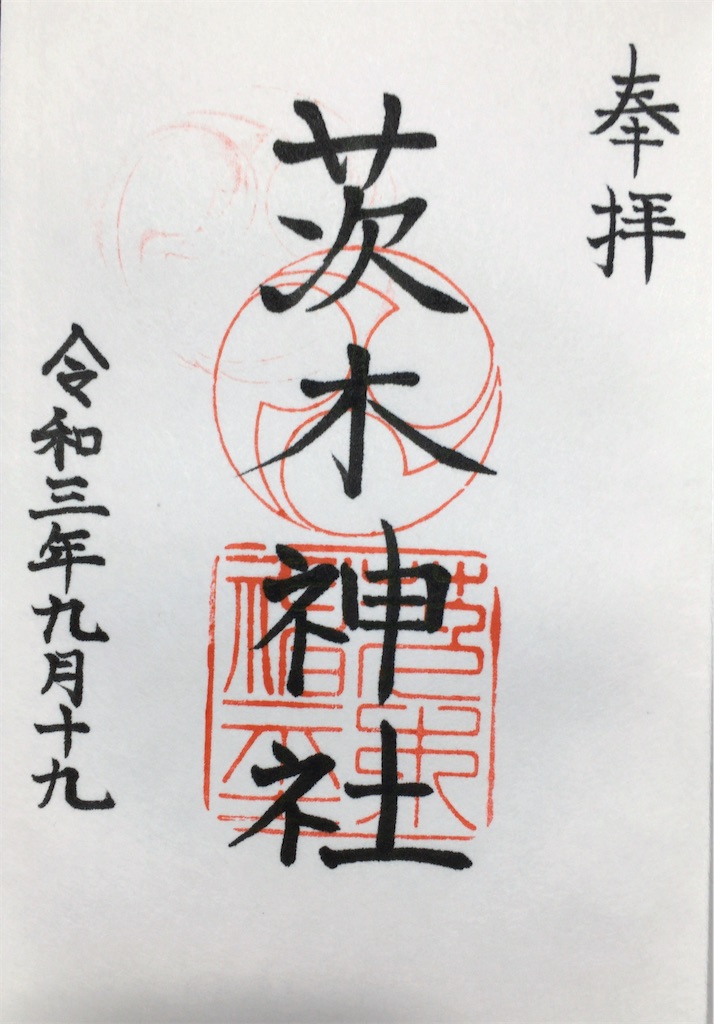 奉拝
茨木神社
令和三年九月十九